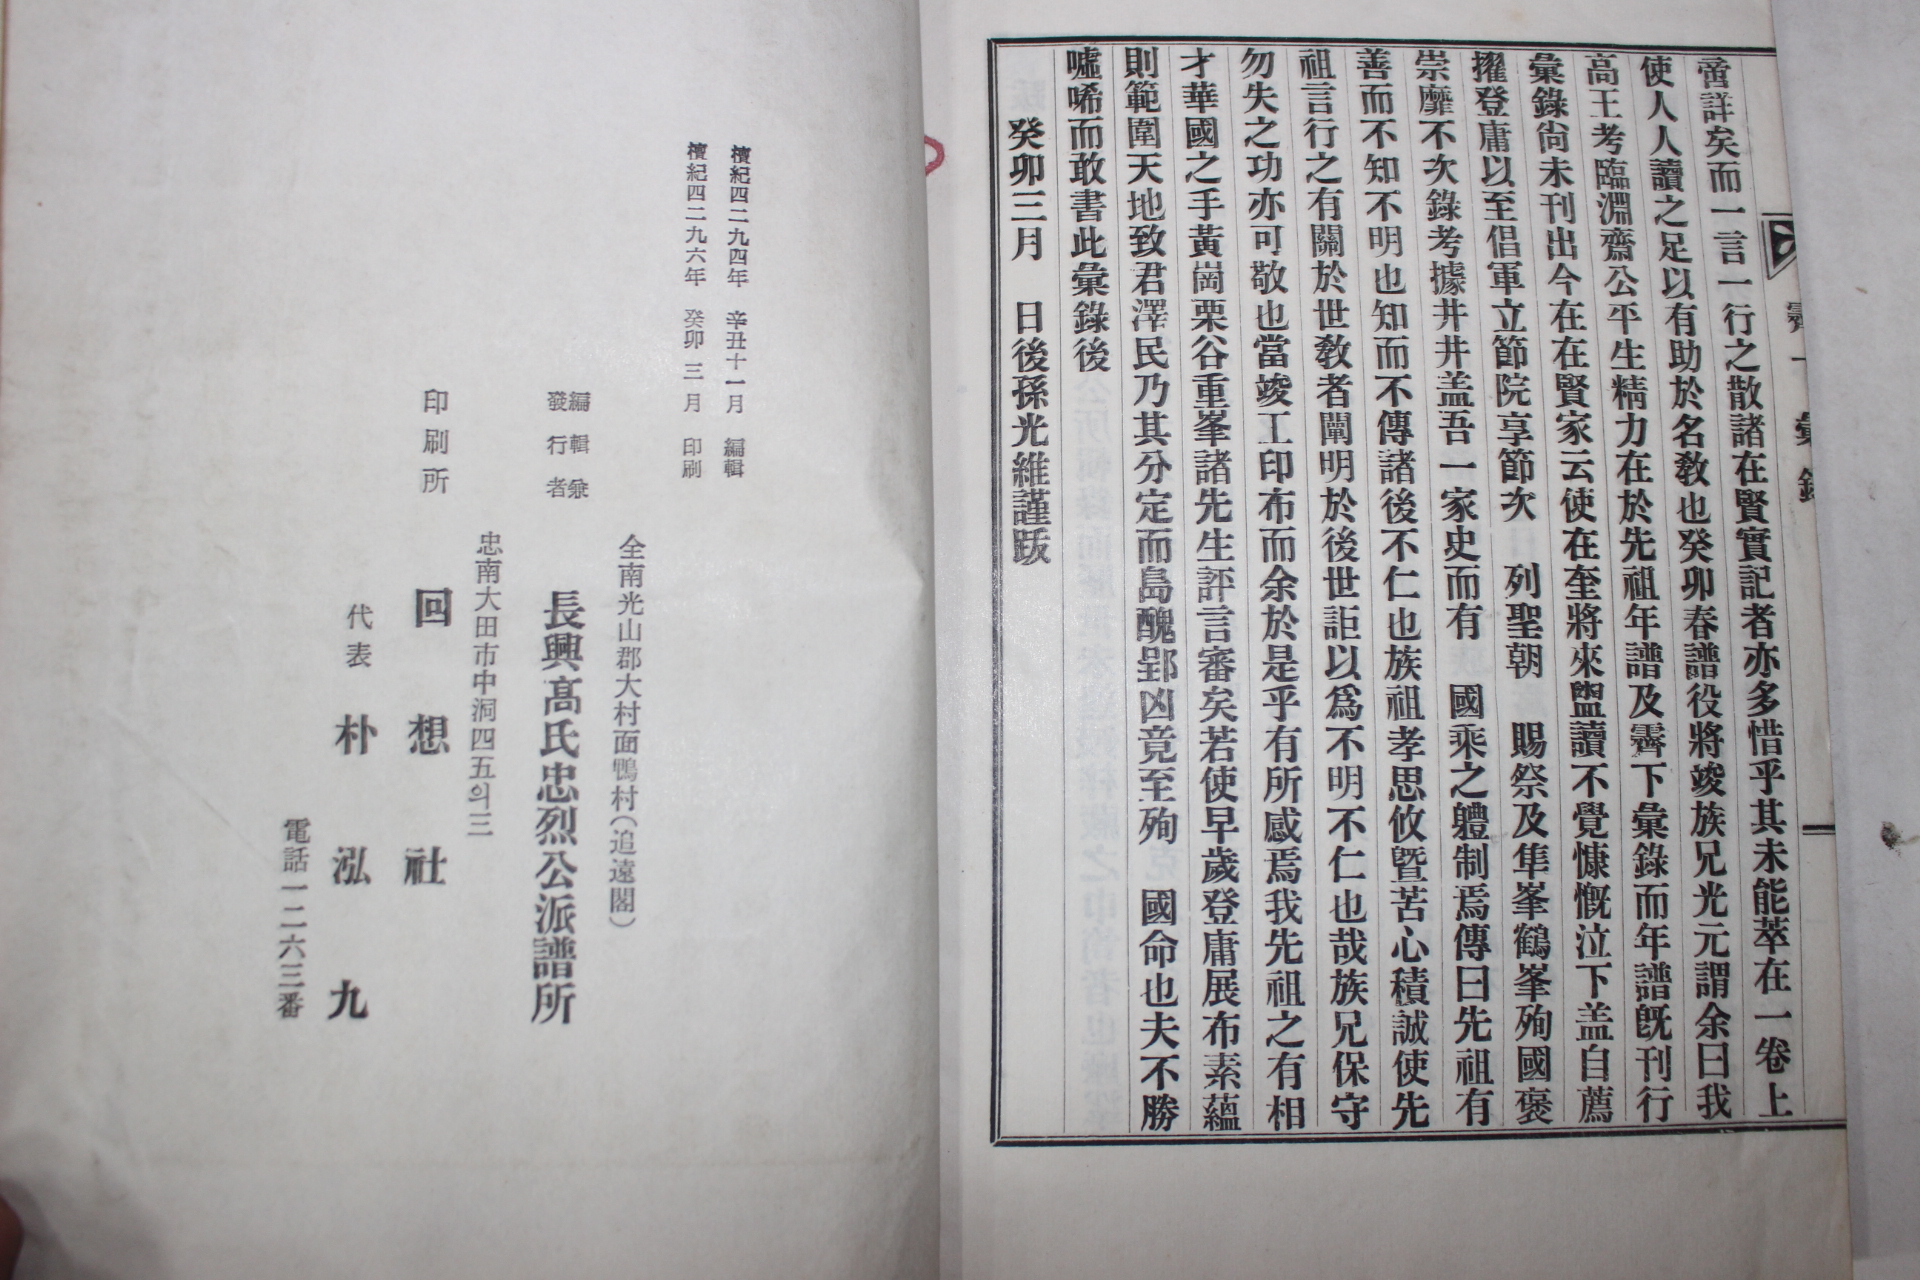 霽下彙錄
啻詳矣而一言一行之散諸在賢實記者亦多惜乎其未能萃在一卷上
使人人讀之足以有助於名敎也癸卯春譜役將竣族兄光元謂余曰我
高王考臨淵齋公平生精力在於先祖年譜及霽下彙錄而年譜旣刊行
彙錄尙未刊出今在在賢家云使在奎將來盥讀不覺慷慨泣下盖自薦
擢登庸以至倡軍立節院享節次　列聖朝　賜祭及隼峯鶴峯殉國褒
崇靡不次錄考據井井盖吾一家史而有　國乘之軆制焉傳曰先祖有
善而不知不明也知而不傳諸後不仁也族祖孝思攸曁苦心積誠使先
祖言行之有關於世敎者闡明於後世詎以爲不明不仁也哉族兄保守
勿失之功亦可敬也當竣工印布而余於是乎有所感焉我先祖之有相
才華國之手黃崗栗谷重峯諸先生評言審矣若使早歲登庸展布素蘊
則範圍天地致君澤民乃其分定而島醜郢凶竟至殉　國命也夫不勝
噓唏而敢書此彙錄後
癸卯三月　日後孫光維謹跋
檀紀四二九四年　辛丑十一月　編輯
檀紀四二九六年　癸卯三月　印刷
全南光山郡大村面鴨村(追遠閣)
編輯兼
發行者　長興高氏忠烈公派譜所
忠南大田市中洞四五의三
印刷所　回想社
代表　朴泓九
電話一二六三番